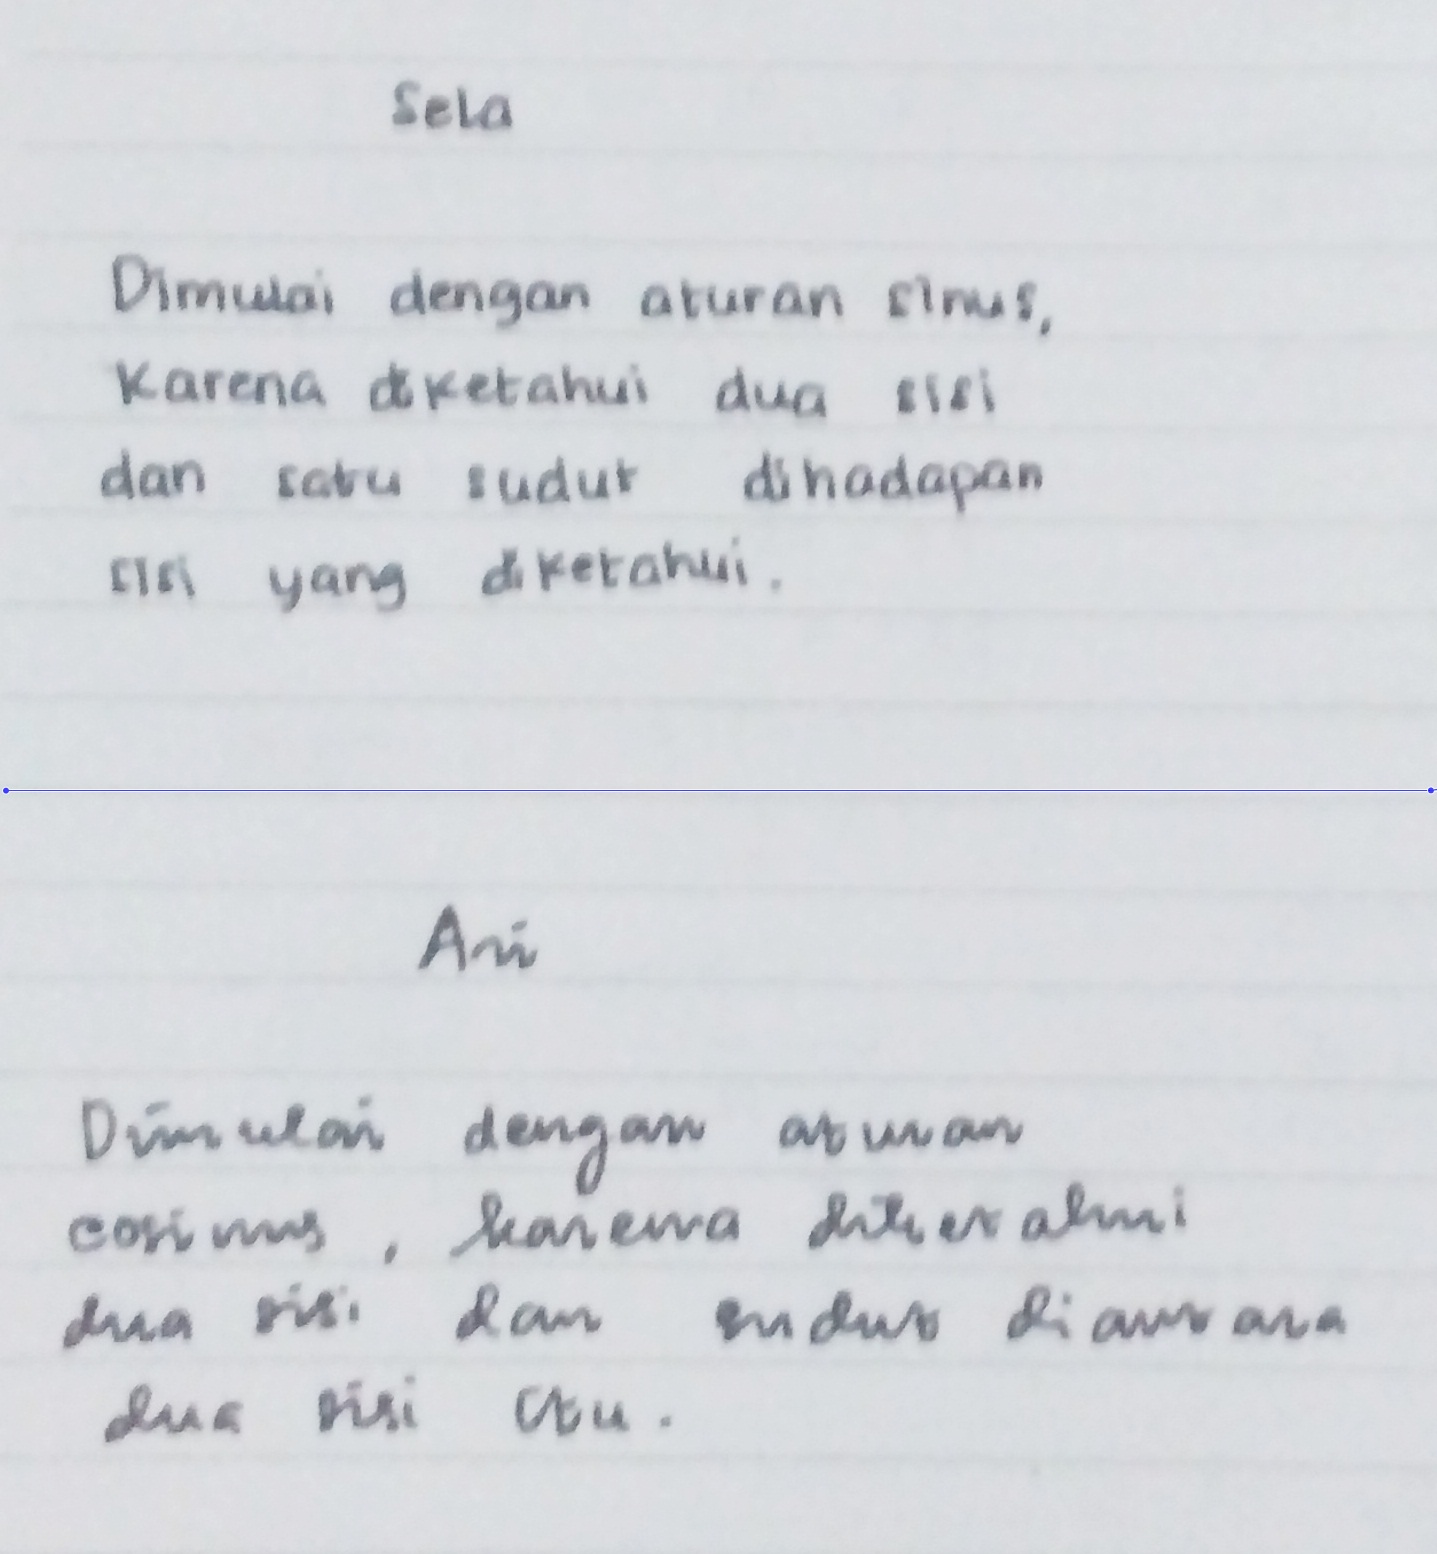 Sela
Dimulai dengan aturan sinus,
Karena diketahui dua sisi
dan satu sudut dihadapan
sisi yang diketahui.
Ari
Dimulai dengan aturan
cosinus, karena diketahui
dua sisi dan sudut diantara
dua sisi itu.